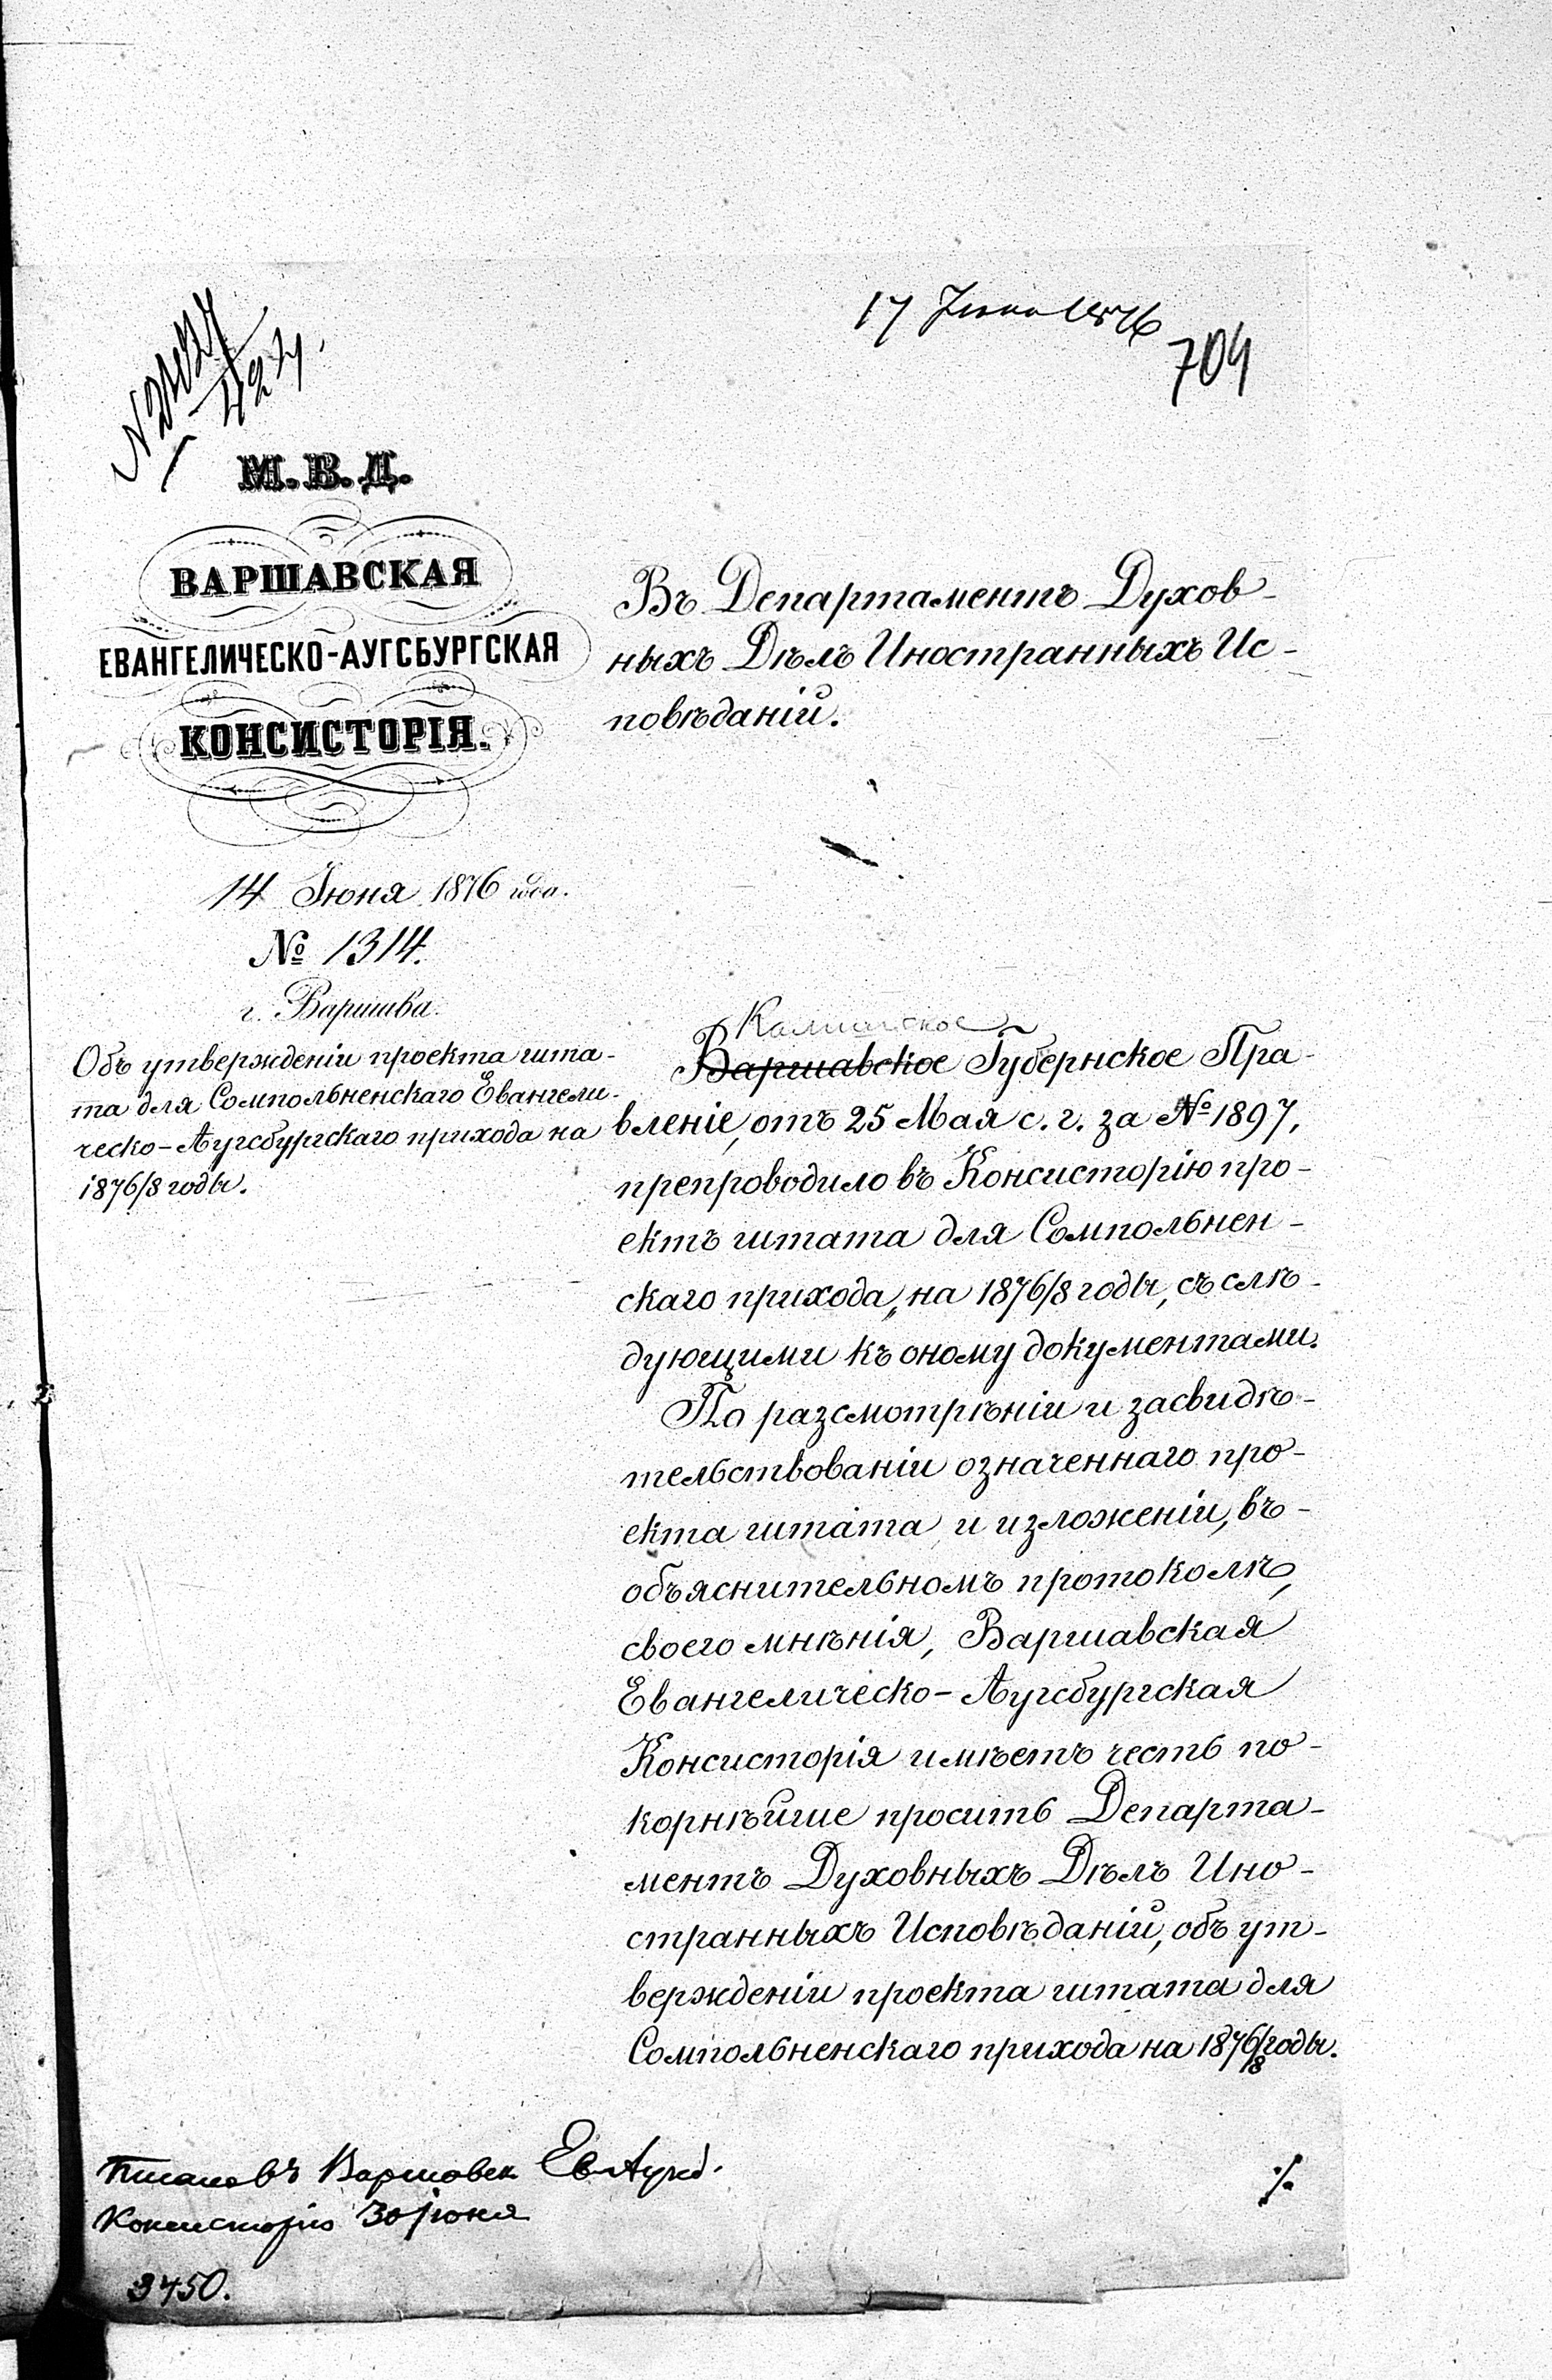 17 Июня 1876
704
М. В. Д.
ВАРШАВСКАЯ
ЕВАНГЕЛИЧЕСКО-АУГСБУРГСКАЯ
КОНСИСТОРІЯ.
14 Іюня 1876 года.
№ 1314.
г. Варшава.
Объ утвержденіи проекта шта-
та для Сомпольненскаго Евангели-
ческо-Аугсбургскаго прихода на
1876/8 годы.
Въ Департаментъ Духов-
ныхъ Дѣлъ Иностранныхъ Ис-
повѣданій.
Калишское
Варшавское Губернское Пра-
вленіе, отъ 25 Мая с. г. за № 1897,
препроводило въ Консисторію про-
ектъ штата для Сомпольнен-
скаго прихода, на 1876/8 годы, съ слѣ-
дующими къ оному документами.
По разсмотрѣніи и засвидѣ-
тельствованіи означеннаго про-
екта штата и изложеніи, въ
объяснительномъ протоколѣ,
своего мнѣнія, Варшавская
Евангелическо-Аугсбургская
Консисторія имѣетъ честь по-
корнѣйше просить Департа-
ментъ Духовныхъ Дѣлъ Ино-
странныхъ Исповѣданій, объ ут-
вержденіи проекта штата для
Сомпольненскаго прихода на 1876/8 годы.
./.
Писано въ Варшавск Ев-Аугсб.
Консисторію 30 іюня
3450.